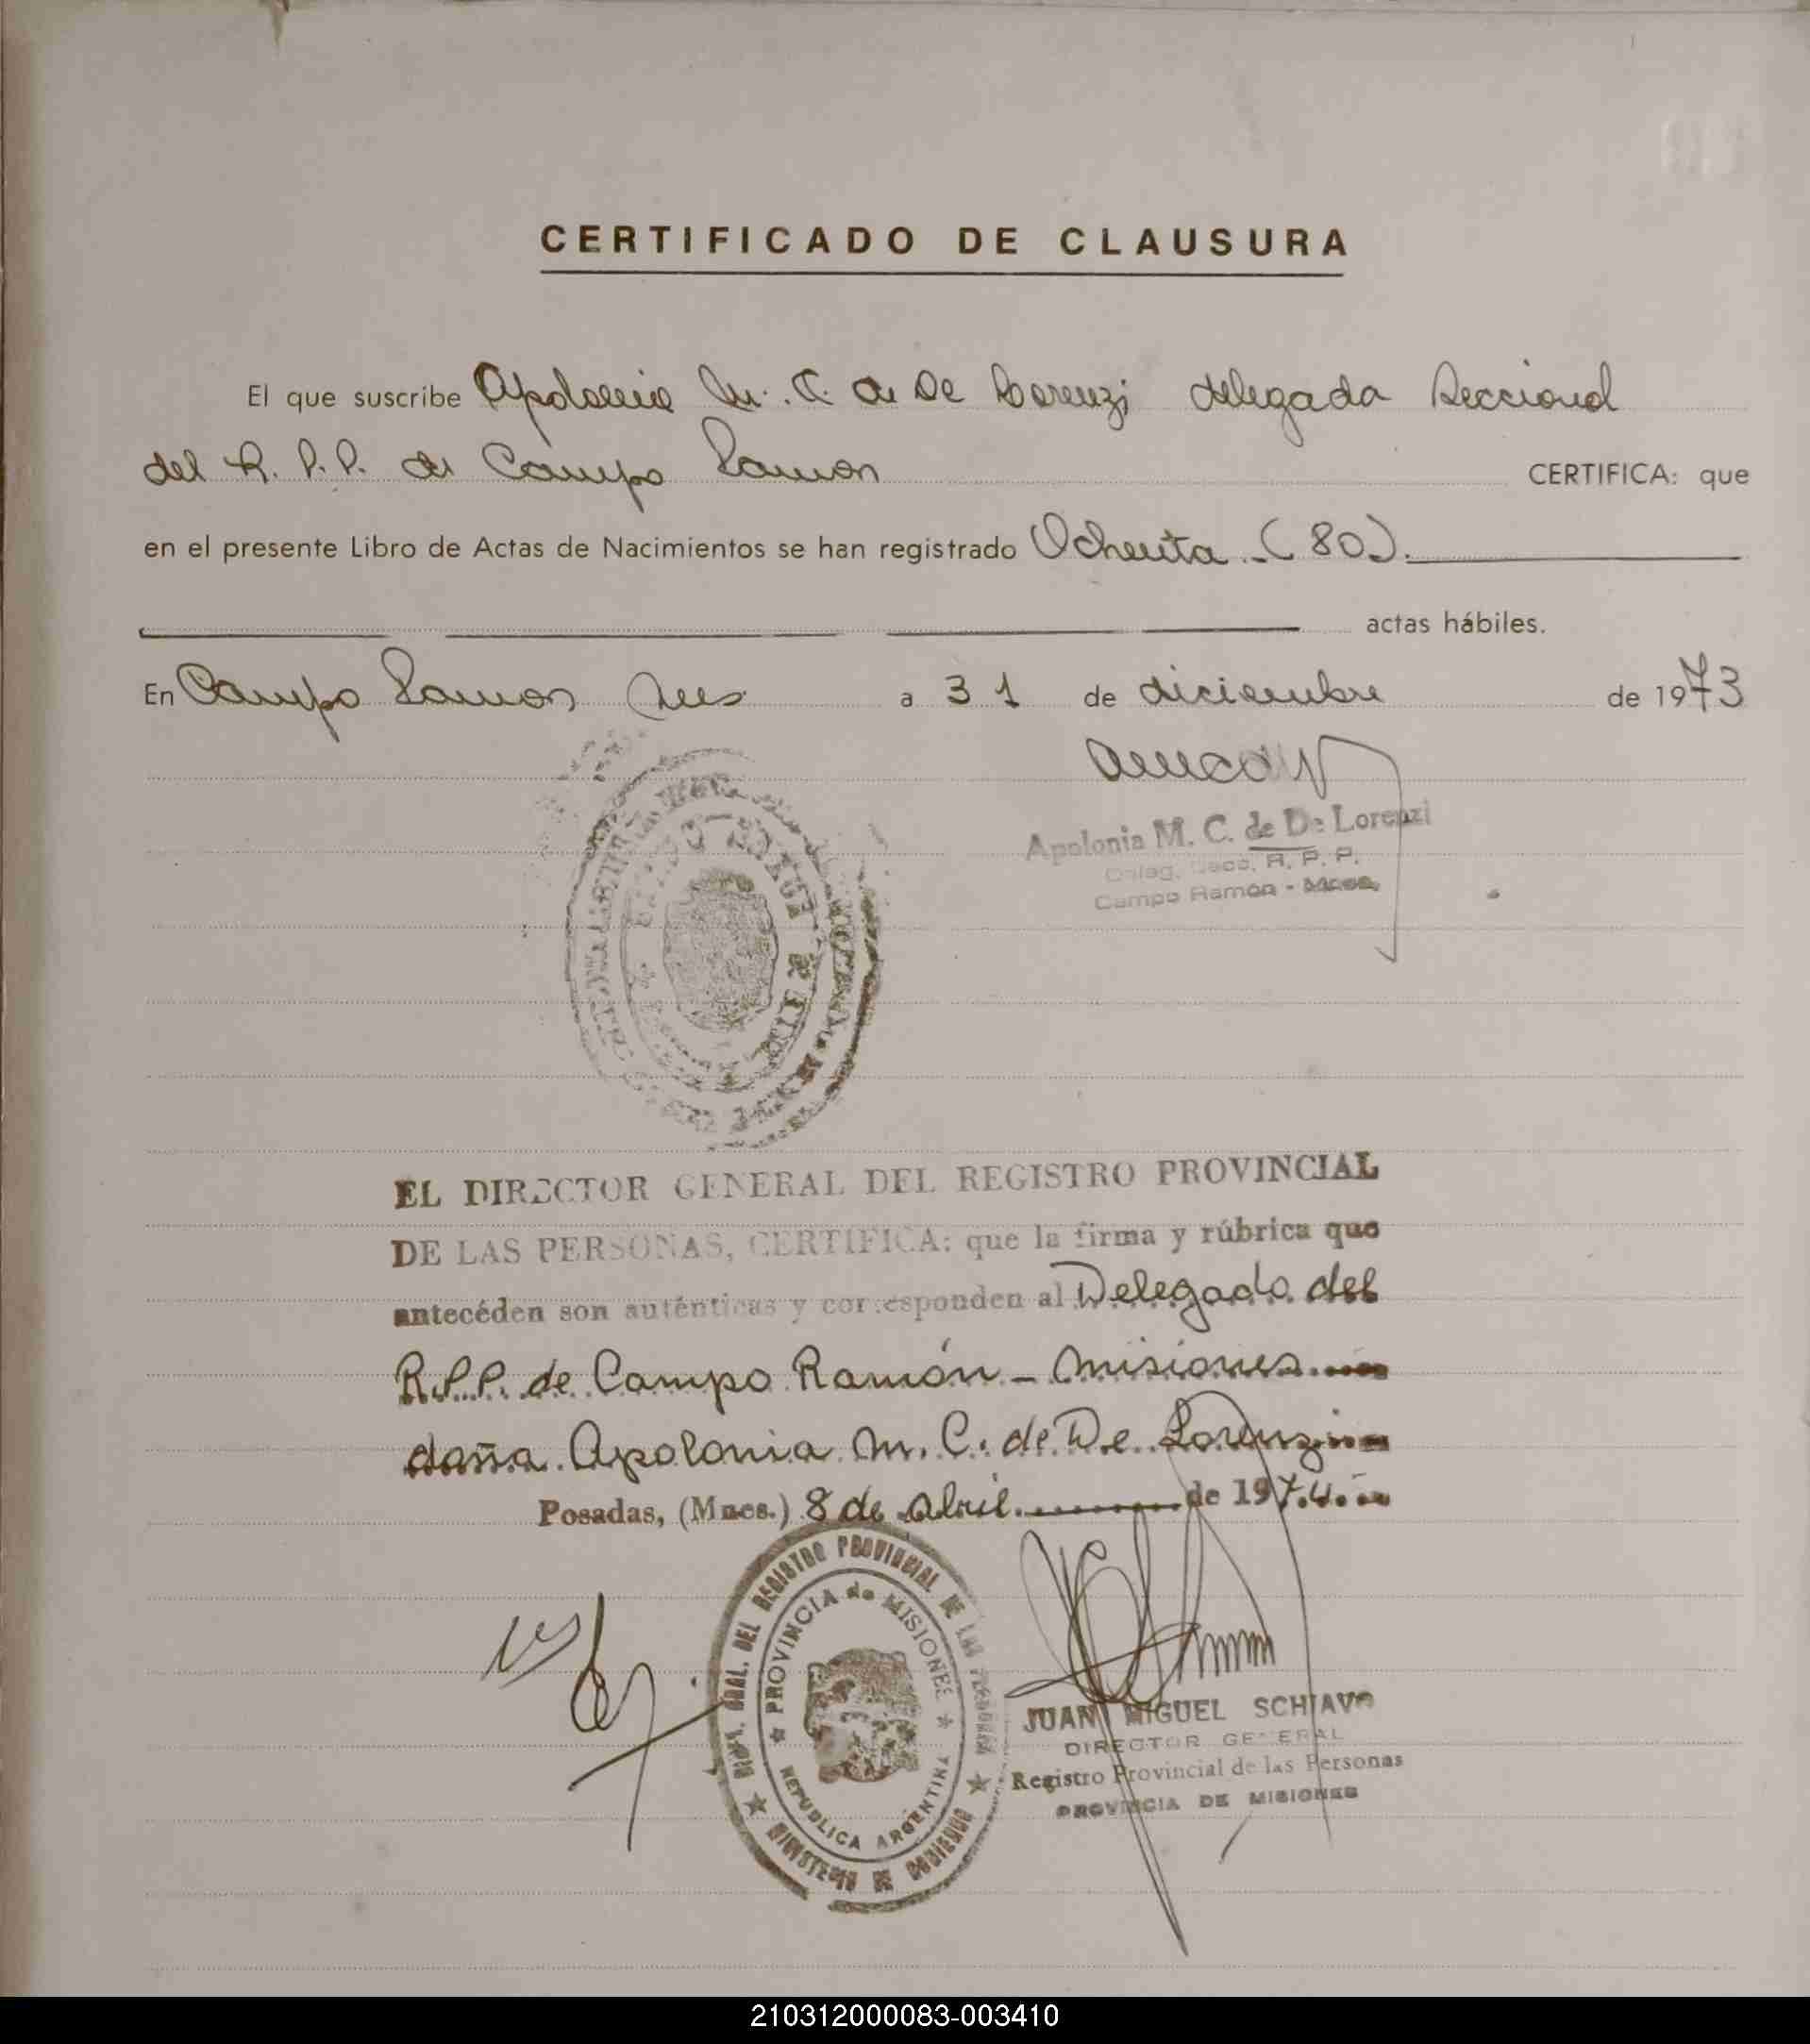 CERTIFICADO DE CLAUSURA
El que suscribe Apolonia M. C. de De Lorenzi delegada Seccional
del R. P. P. de Campo Ramon CERTIFICA: que
en el presente Libro de Actas de Nacimientos se han registrado Ochenta (80).
actas hábiles.
En Campo Ramon Mnes a 31 de diciembre de 1973
Apolonia M. C. de De Lorenzi
Deleg. Secc. R. P. P.
Campo Ramon - Mnes.
EL DIRECTOR GENERAL DEL REGISTRO PROVINCIAL
DE LAS PERSONAS, CERTIFICA: que la firma y rúbrica que
antecéden son auténticas y corresponden al Delegado del
R.P.P. de Campo Ramón - Misiones
doña Apolonia M. C. de De Lorenzi
Posadas, (Mnes.) 8 de Abril de 1974
DIREC. GRAL. DEL REGISTRO PROVINCIAL DE LAS PERSONAS
PROVINCIA de MISIONES
REPUBLICA ARGENTINA
MINISTERIO DE GOBIERNO
JUAN MIGUEL SCHIAVO
DIRECTOR GENERAL
Registro Provincial de las Personas
PROVINCIA DE MISIONES
210312000083-003410